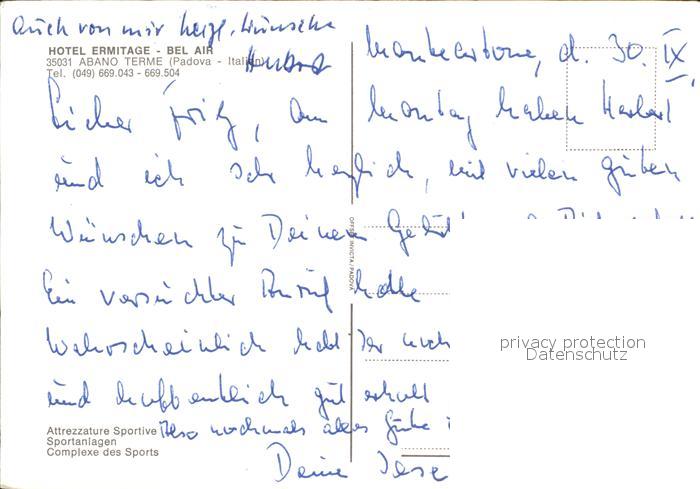 Auch von mir herzl. Wünsche
Herbert
HOTEL ERMITAGE - BEL AIR
35031 ABANO TERME (Padova - Italien)
Tel. (049) 669.043 - 669.504
d. 30. IX.
Lieber Fritz, am Montag haben Herbert
und ich sehr herzlich, mit vielen guten
Wünschen zu Deinem
Ein versuchter Anruf hatte
Wahrscheinlich habt Ihr noch
und hoffentlich gut erholt
Also nochmals alles Gute
Deine
Attrezzature Sportive
Sportanlagen
Complexe des Sports
OFFSET INVICTA/PADOVA
privacy protection
Datenschutz